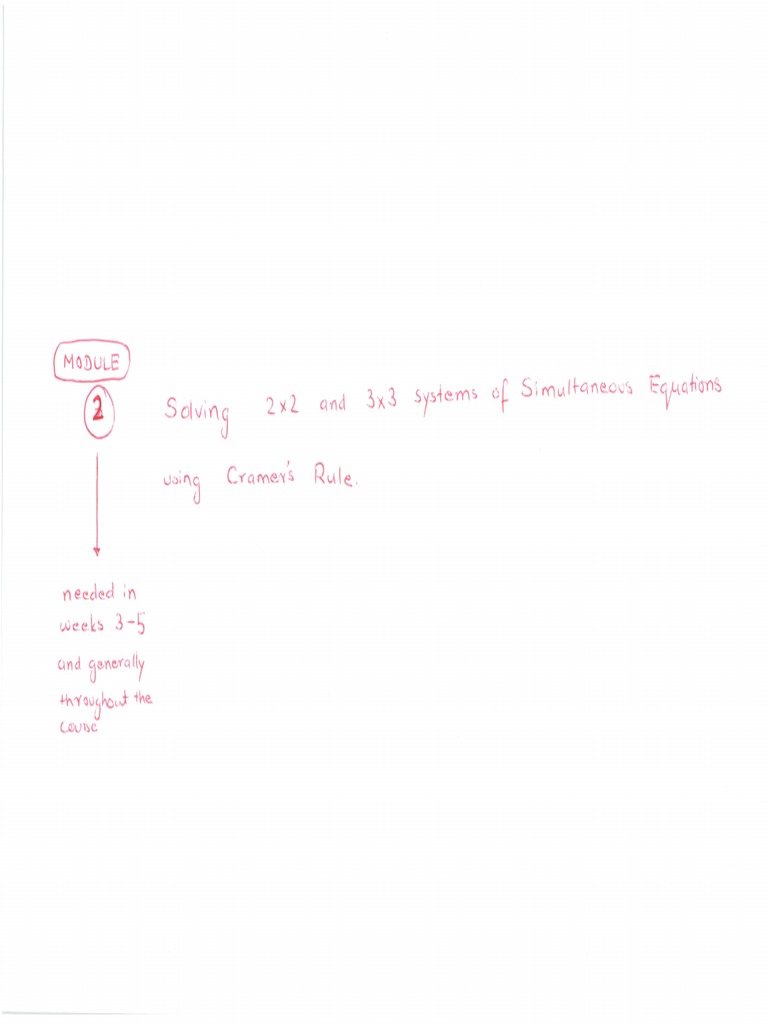 MODULE
2
Solving 2x2 and 3x3 systems of Simultaneous Equations
using Cramer's Rule.
needed in
weeks 3-5
and generally
throughout the